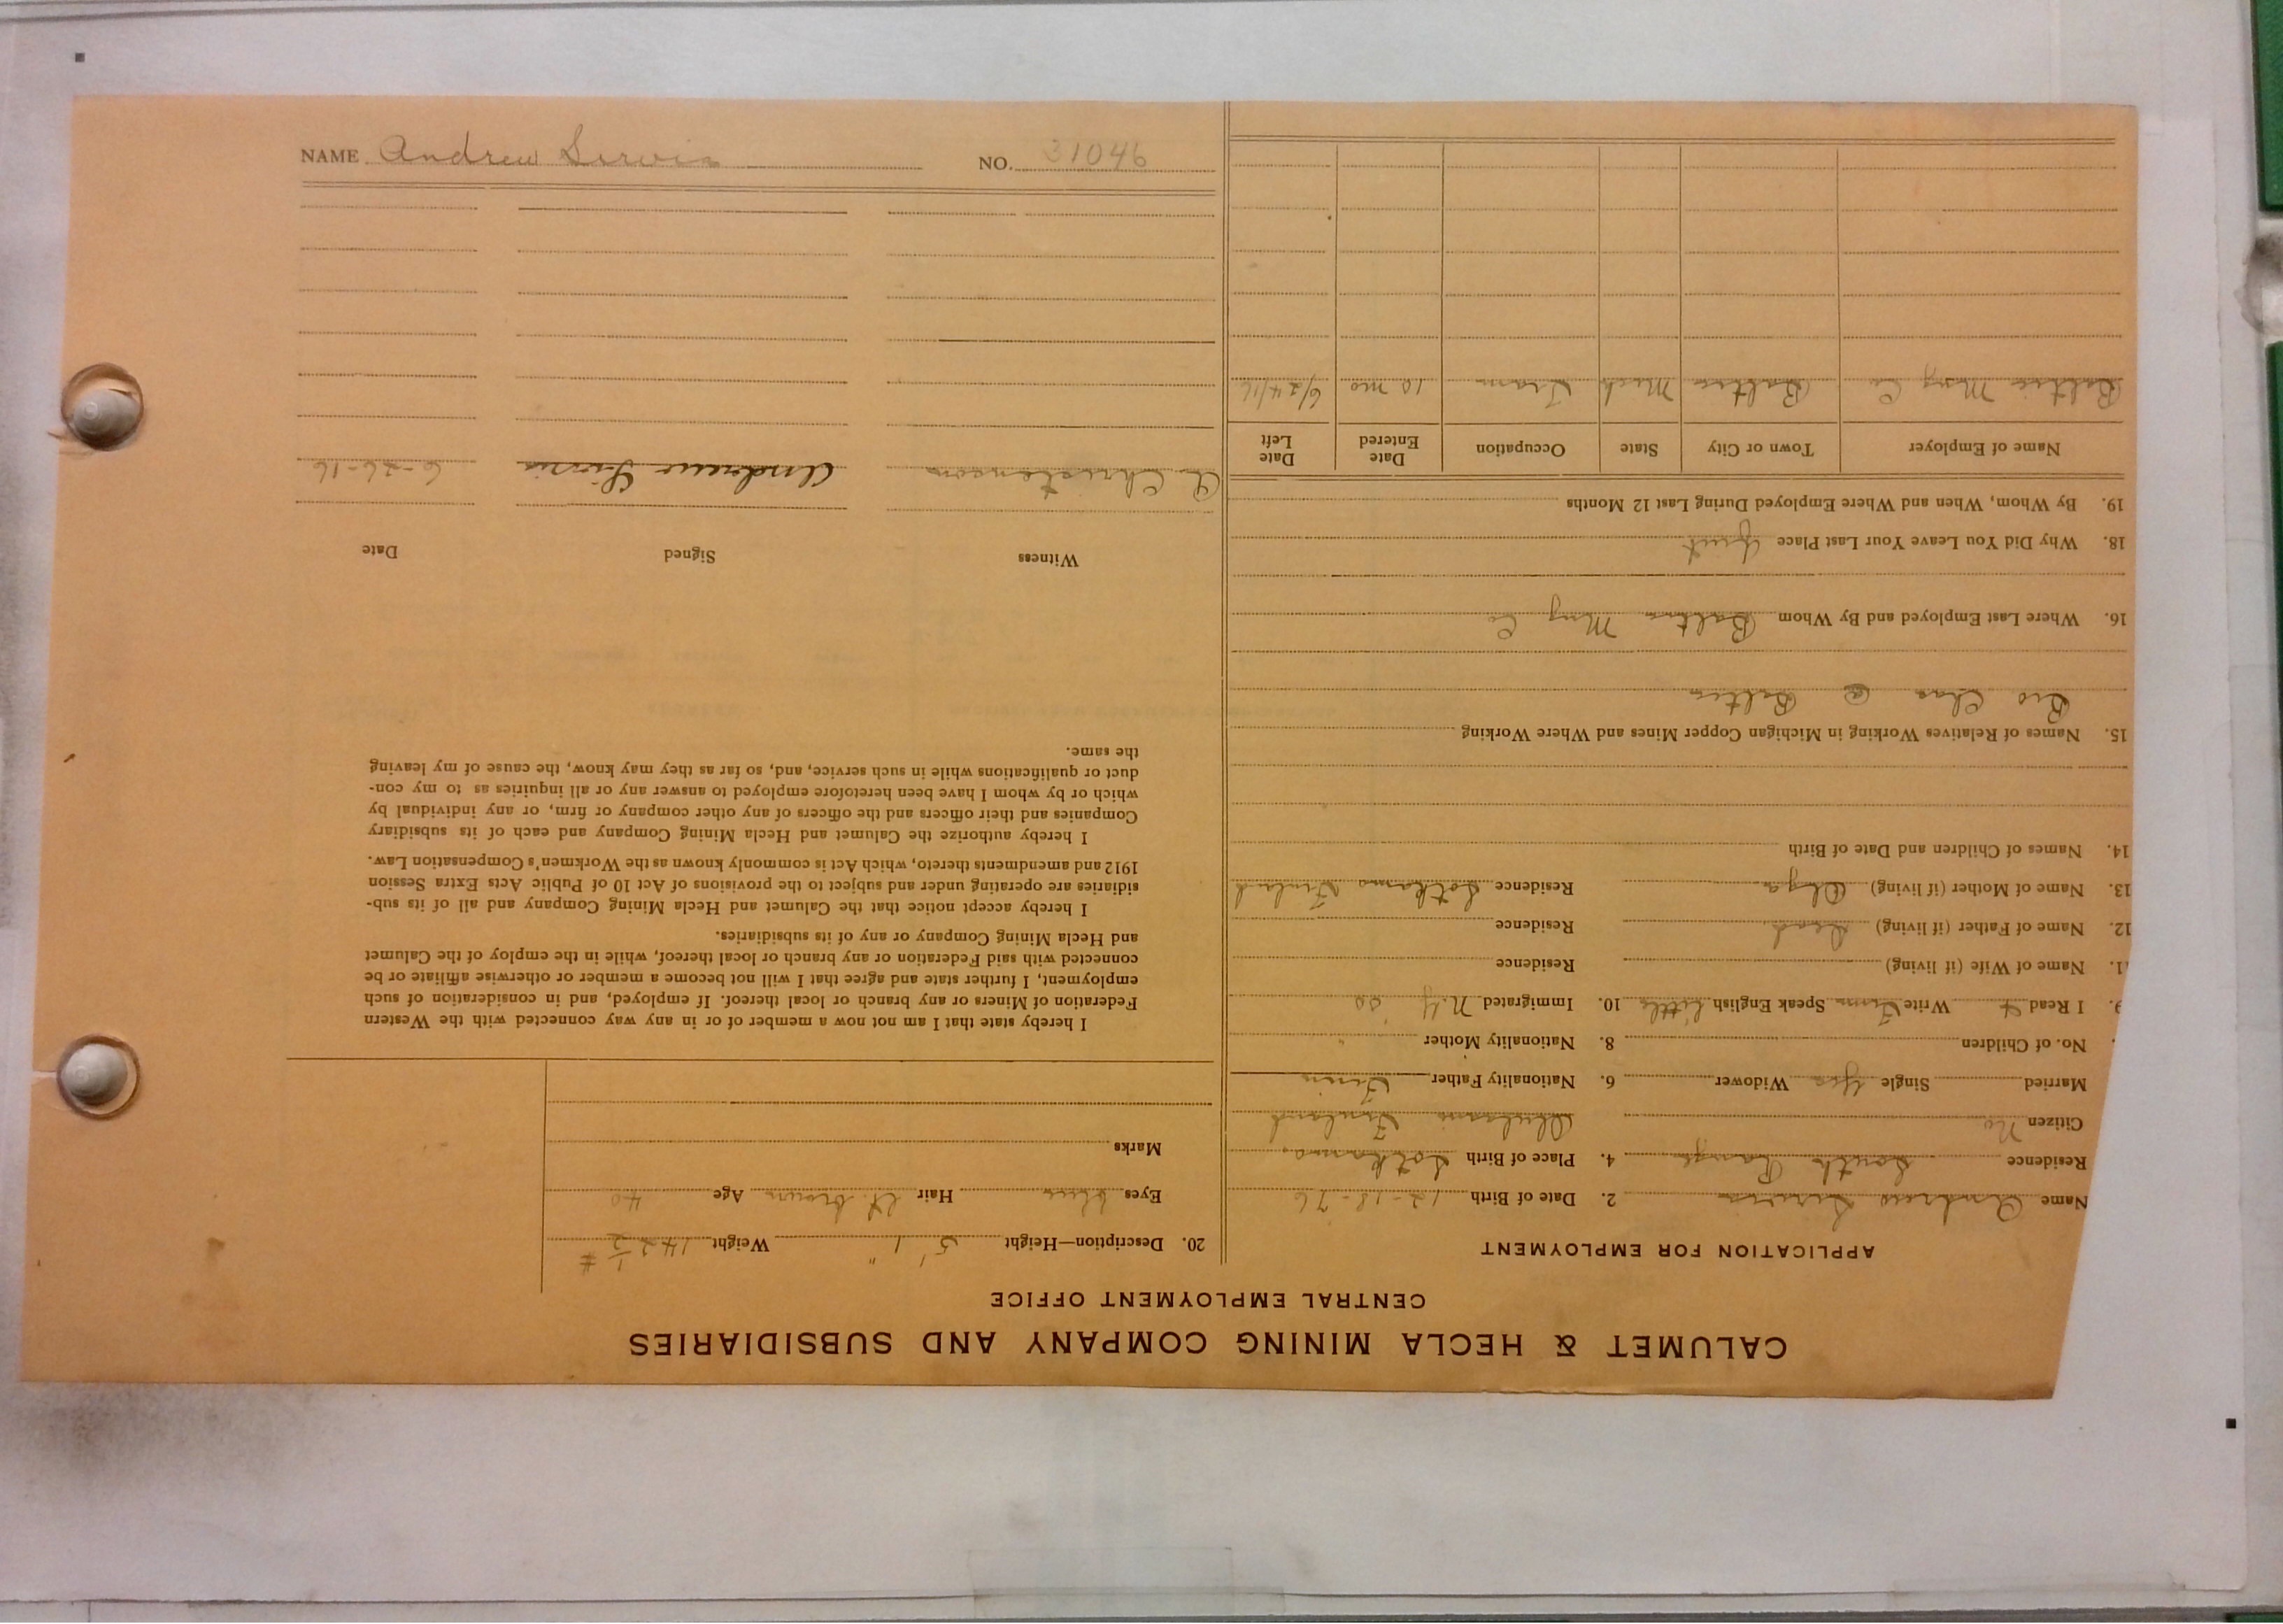 CALUMET & HECLA MINING COMPANY AND SUBSIDIARIES
CENTRAL EMPLOYMENT OFFICE
APPLICATION FOR EMPLOYMENT
Name Andrew 2. Date of Birth 12-18-76
Residence South Range 4. Place of Birth Sotkamo
Citizen No Finland
Married Single Yes Widower 6. Nationality Father Finn
No. of Children 8. Nationality Mother "
9. I Read Write Finn Speak English little 10. Immigrated N.Y.
11. Name of Wife (if living) Residence
12. Name of Father (if living) Dead Residence
13. Name of Mother (if living) Olga Residence Sotkamo Finland
14. Names of Children and Date of Birth
15. Names of Relatives Working in Michigan Copper Mines and Where Working
Bro Chas @ Baltic
16. Where Last Employed and By Whom Baltic Mng Co
18. Why Did You Leave Your Last Place Quit
19. By Whom, When and Where Employed During Last 12 Months
Name of Employer Town or City State Occupation Date Entered Date Left
Baltic Mng Co Baltic Mich Tram 10 mo 6/24/16
20. Description—Height 5' 1" Weight 142 1/2 #
Eyes blue Hair lt. brown Age 40
Marks
I hereby state that I am not now a member of or in any way connected with the Western
Federation of Miners or any branch or local thereof. If employed, and in consideration of such
employment, I further state and agree that I will not become a member or otherwise affiliate or be
connected with said Federation or any branch or local thereof, while in the employ of the Calumet
and Hecla Mining Company or any of its subsidiaries.
I hereby accept notice that the Calumet and Hecla Mining Company and all of its sub-
sidiaries are operating under and subject to the provisions of Act 10 of Public Acts Extra Session
1912 and amendments thereto, which Act is commonly known as the Workmen's Compensation Law.
I hereby authorize the Calumet and Hecla Mining Company and each of its subsidiary
Companies and their officers and the officers of any other company or firm, or any individual by
which or by whom I have been heretofore employed to answer any or all inquiries as to my con-
duct or qualifications while in such service, and, so far as they may know, the cause of my leaving
the same.
Witness Signed Date
A Christenson Andrew 6-26-16
NAME Andrew NO. 31046